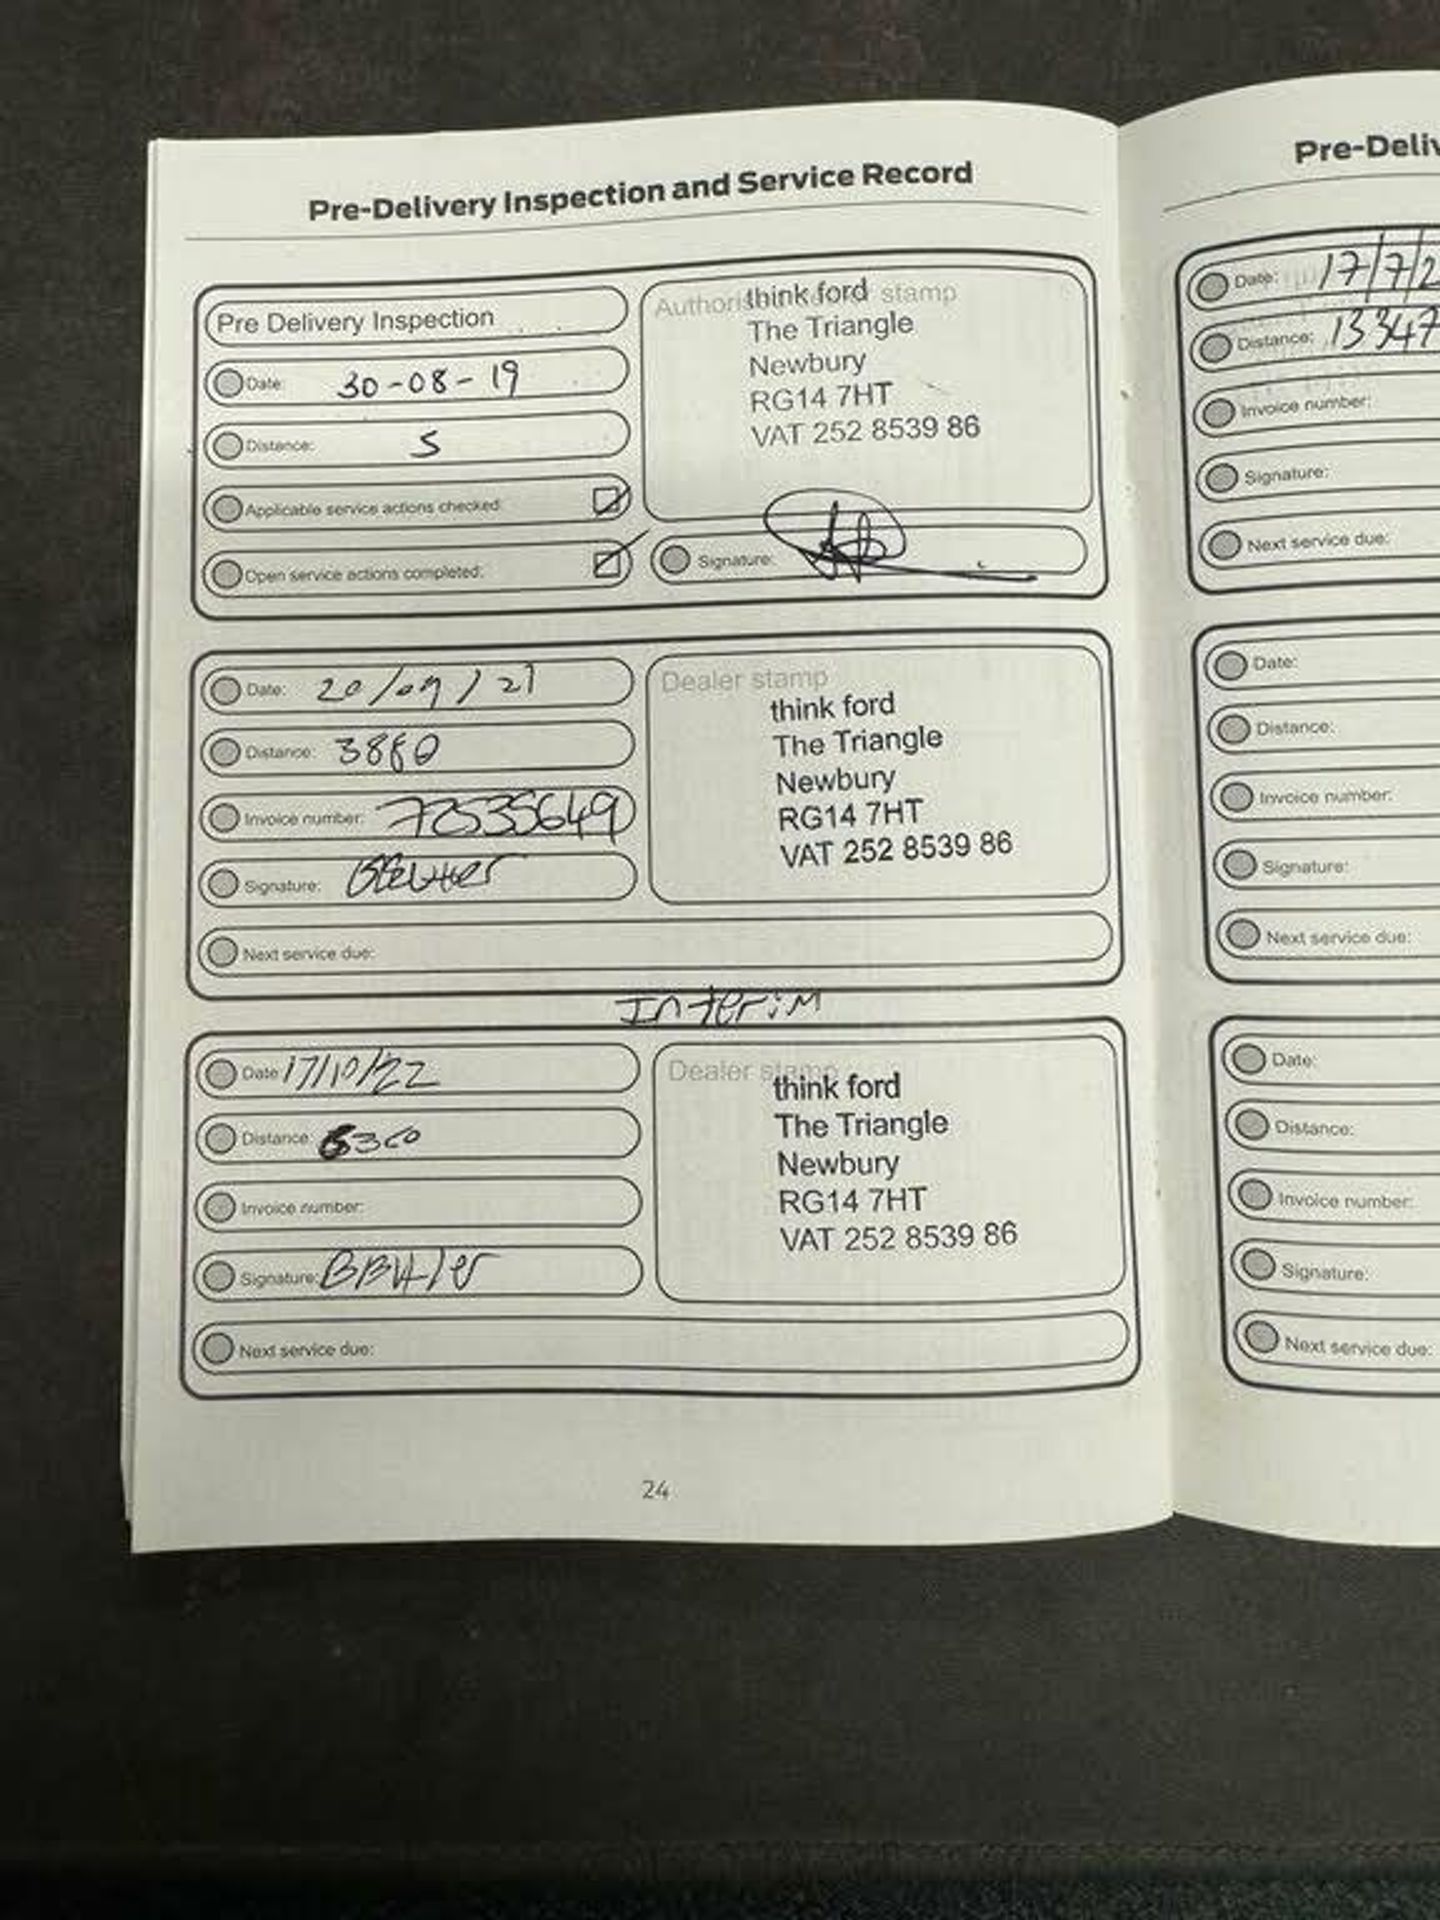 Pre-Delivery Inspection and Service Record
Pre Delivery Inspection
Date: 30-08-19
Distance: 5
Applicable service actions checked:
Open service actions completed:
Authorised stamp
think ford
The Triangle
Newbury
RG14 7HT
VAT 252 8539 86
Signature:
Date: 20/09/21
Distance: 3880
Invoice number: 70535649
Signature:
Next service due:
Dealer stamp
think ford
The Triangle
Newbury
RG14 7HT
VAT 252 8539 86
Interim
Date: 17/10/22
Distance: 6300
Invoice number:
Signature: BButler
Next service due:
Dealer stamp
think ford
The Triangle
Newbury
RG14 7HT
VAT 252 8539 86
24
Pre-Deliv
Date: 17/7/2
Distance: 13347
Invoice number:
Signature:
Next service due:
Date:
Distance:
Invoice number:
Signature:
Next service due:
Date:
Distance:
Invoice number:
Signature:
Next service due: